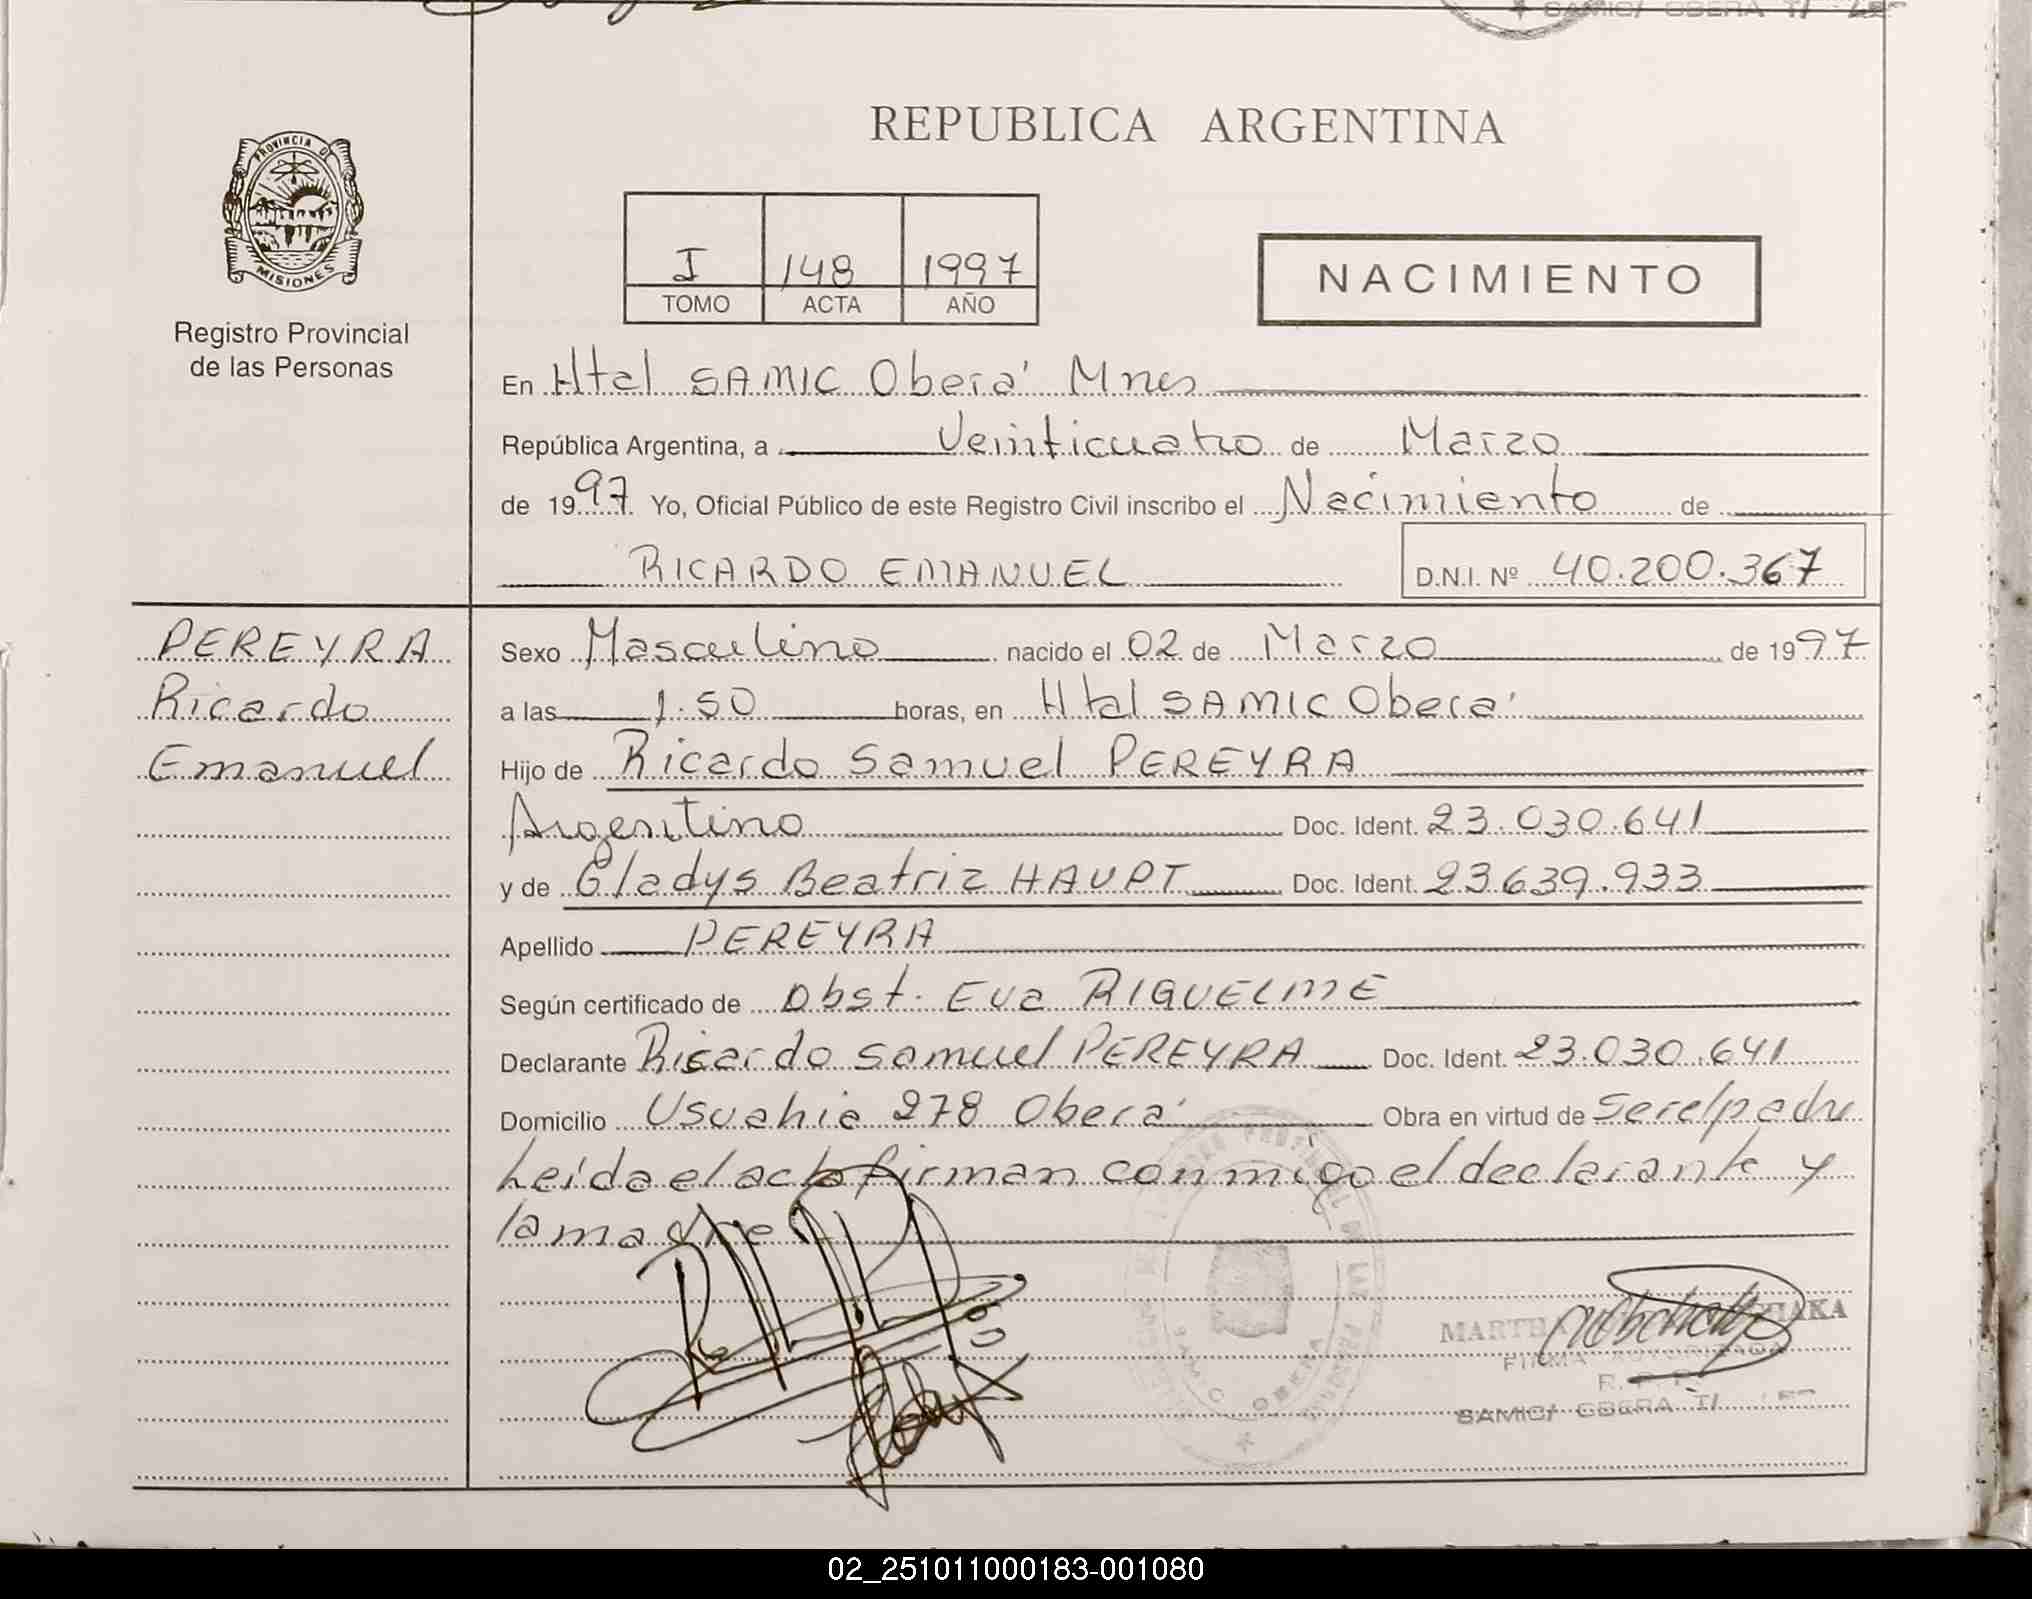 SAMIC/ OBERA
REPUBLICA ARGENTINA
PROVINCIA DE
MISIONES
Registro Provincial
de las Personas
I 148 1997
TOMO ACTA AÑO
NACIMIENTO
En Htal SAMIC Oberá Mnes
República Argentina, a Veinticuatro de Marzo
de 1997 Yo, Oficial Público de este Registro Civil inscribo el Nacimiento de
RICARDO EMANUEL D.N.I. Nº 40.200.367
PEREYRA
Ricardo
Emanuel
Sexo Masculino nacido el 02 de Marzo de 1997
a las 1.50 horas, en Htal SAMIC Oberá
Hijo de Ricardo Samuel PEREYRA
Argentino Doc. Ident. 23.030.641
y de Gladys Beatriz HAUPT Doc. Ident. 23.639.933
Apellido PEREYRA
Según certificado de Obst. Eva RIQUELME
Declarante Ricardo Samuel PEREYRA Doc. Ident. 23.030.641
Domicilio Usuahia 278 Oberá Obra en virtud de Ser el padre
Leída el acta firman conmigo el declarante y
la madre
MARTH
FIRMA AUTORIZADA
R. P. P.
SAMIC/ OBERA
02_251011000183-001080